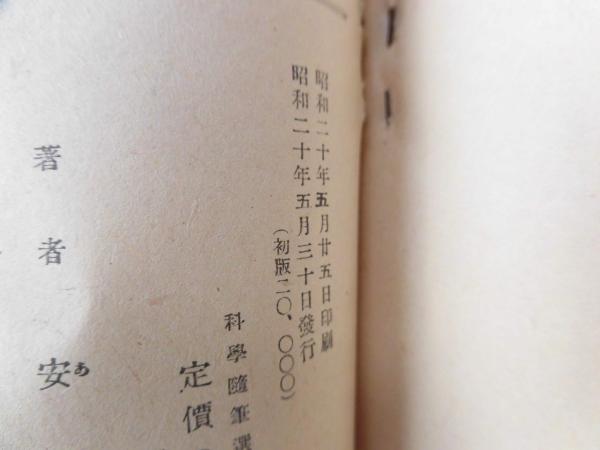 昭和二十年五月廿五日印刷
昭和二十年五月三十日發行
(初版二〇、〇〇〇)
科學隨筆選
定價
著者 安
あ